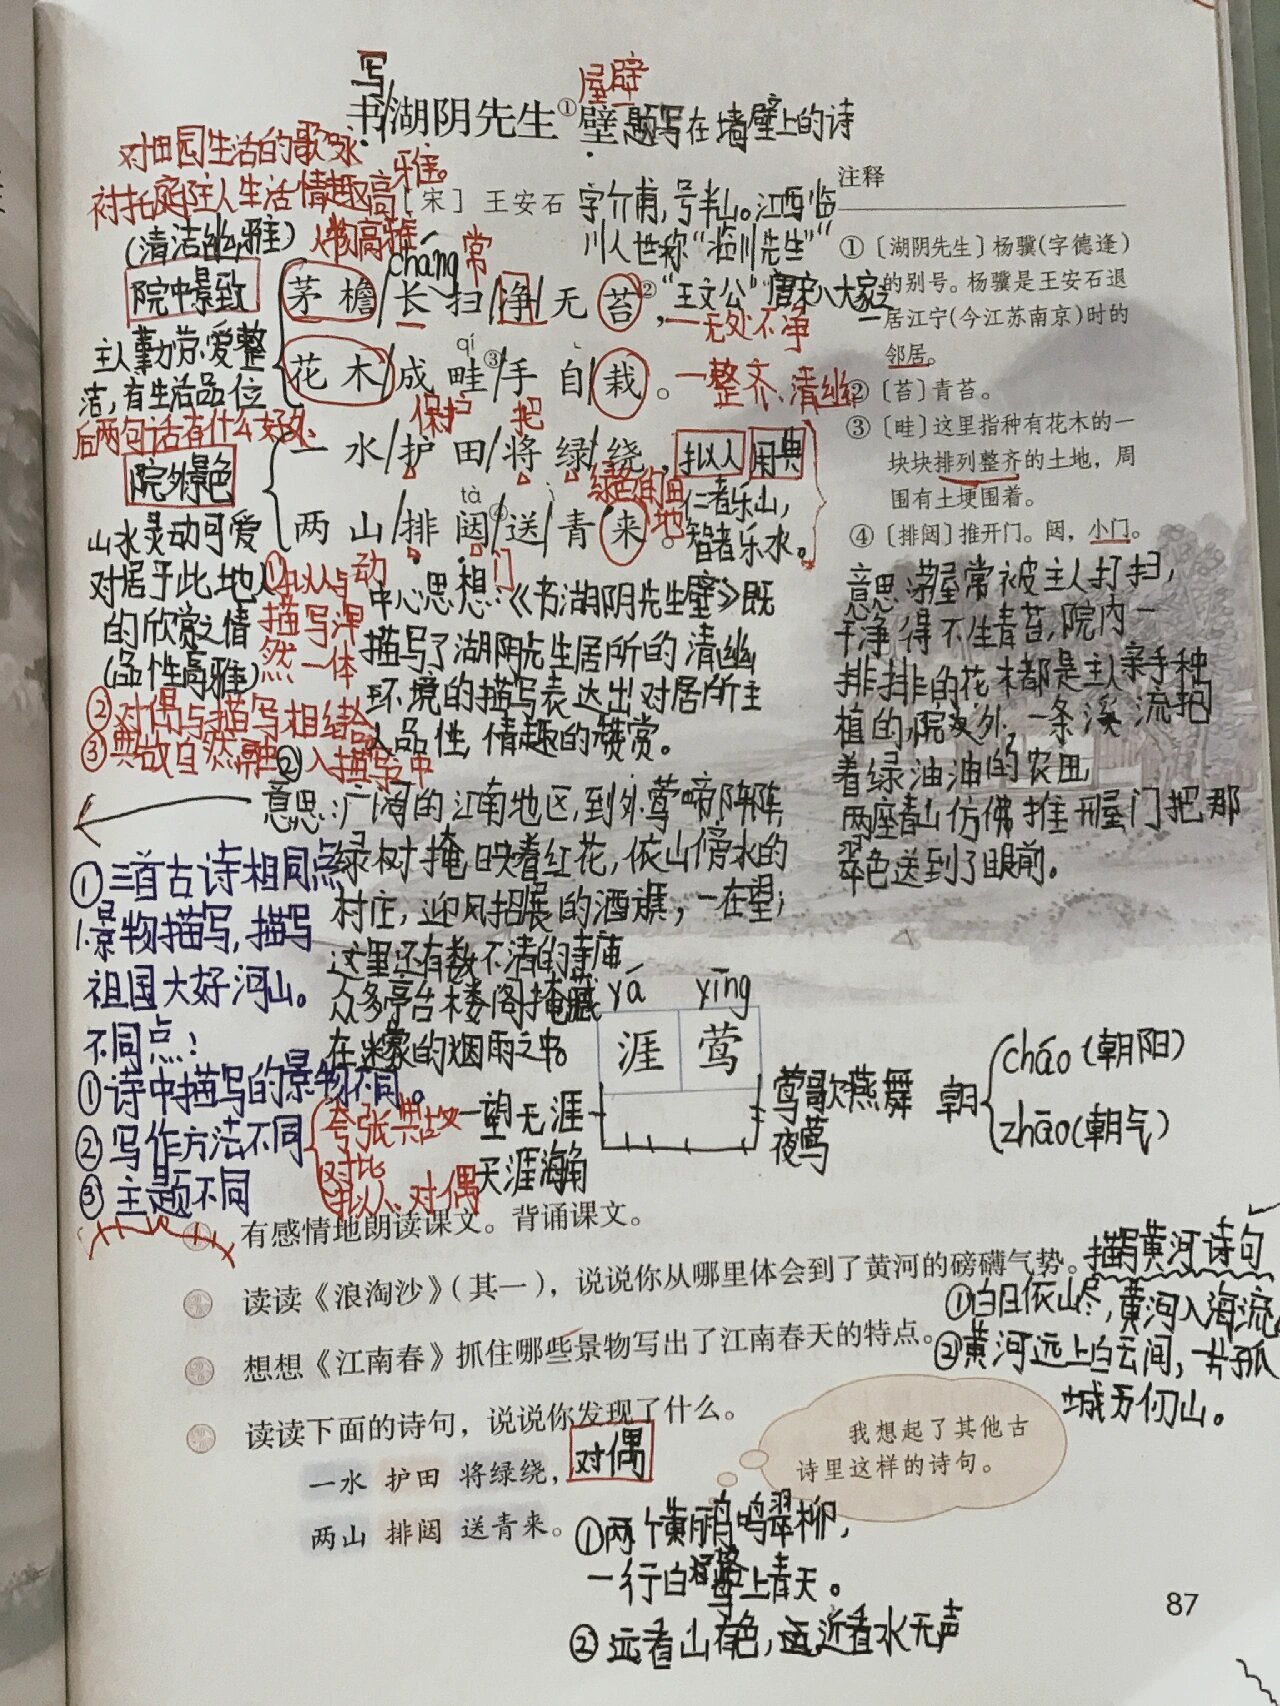 写
屋壁
书湖阴先生①壁 题写在墙壁上的诗
对田园生活的歌咏
衬托庭院主人生活情趣高雅。
(清洁幽雅) 人物高雅
[宋] 王安石 字介甫,号半山。江西临
川人世称“临川先生”
“王文公”唐宋八大家之一
院中景致
cháng 常
茅檐/长扫/净/无苔②, 一无处不净
主人勤劳,爱整
洁,有生活品位
qí
花木/成畦③/手自/栽。一整齐、清幽
后两句话有什么好处:
保护 把
院外景色
一水/护田/将绿/绕, 拟人 用典
绿色的田地
tà
两山/排闼④/送/青来。
仁者乐山,
智者乐水。
门
山水灵动可爱
对居于此地人
的欣赏之情
(品性高雅)
①拟人与动
描写浑
然一体
②对偶与描写相结合
③典故自然融入描写中
中心思想:《书湖阴先生壁》既
描写了湖阴先生居所的清幽
环境的描写表达出对居所主
人品性,情趣的赞赏。
注释
①〔湖阴先生〕杨骥(字德逢)
的别号。杨骥是王安石退
居江宁(今江苏南京)时的
邻居。
②〔苔〕青苔。
③〔畦〕这里指种有花木的一
块块排列整齐的土地,周
围有土埂围着。
④〔排闼〕推开门。闼,小门。
意思:茅屋常被主人打扫,
干净得不生青苔,院内一
排排的花木都是主人亲手种
植的,院之外,一条溪流抱
着绿油油的农田
两座青山仿佛推开屋门把那
翠色送到了眼前。
②
意思:广阔的江南地区,到处莺啼阵阵
绿树掩映着红花,依山傍水的
村庄,迎风招展的酒旗,一在望;
这里还有数不清的寺庙
众多亭台楼阁掩藏
在迷蒙的烟雨之中。
①三首古诗相同点
1.景物描写,描写
祖国大好河山。
不同点:
①诗中描写的景物不同。
②写作方法不同
夸张 典故
对比
拟人、对偶
③主题不同
yá yīng
涯 莺
一望无涯
天涯海角
莺歌燕舞
夜莺
朝
cháo(朝阳)
zhāo(朝气)
有感情地朗读课文。背诵课文。
读读《浪淘沙》(其一),说说你从哪里体会到了黄河的磅礴气势。
描写黄河诗句
①白日依山尽,黄河入海流。
想想《江南春》抓住哪些景物写出了江南春天的特点。
②黄河远上白云间,一片孤
城万仞山。
读读下面的诗句,说说你发现了什么。
一水 护田 将绿绕,
两山 排闼 送青来。
对偶
我想起了其他古
诗里这样的诗句。
①两个黄鹂鸣翠柳,
一行白鹭上青天。
②远看山有色,近看水无声
87